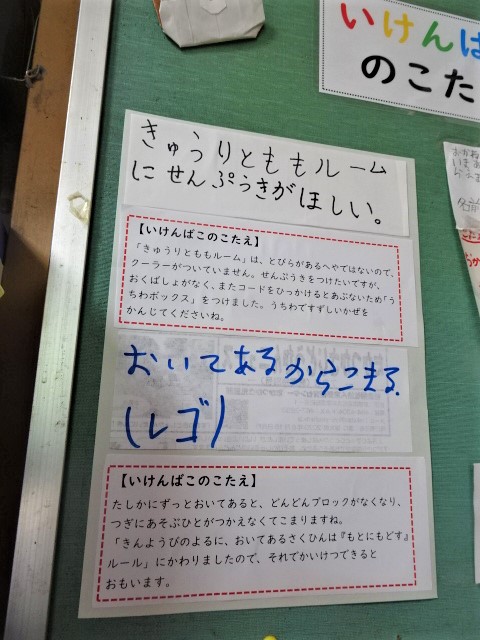 いけんば
のこた
きゅうりとももルーム
にせんぷうきがほしい。
【いけんばこのこたえ】
「きゅうりとももルーム」は、とびらがあるへやではないので、
クーラーがついていません。せんぷうきをつけたいですが、
おくばしょがなく、またコードをひっかけるとあぶないため「う
ちわボックス」をつけました。うちわですずしいかぜを
かんじてくださいね。
おいてあるからこまる.
(レゴ)
【いけんばこのこたえ】
たしかにずっとおいてあると、どんどんブロックがなくなり、
つぎにあそぶひとがつかえなくてこまりますね。
「きんようびのよるに、おいてあるさくひんは『もとにもどす』
ルール」にかわりましたので、それでかいけつできると
おもいます。